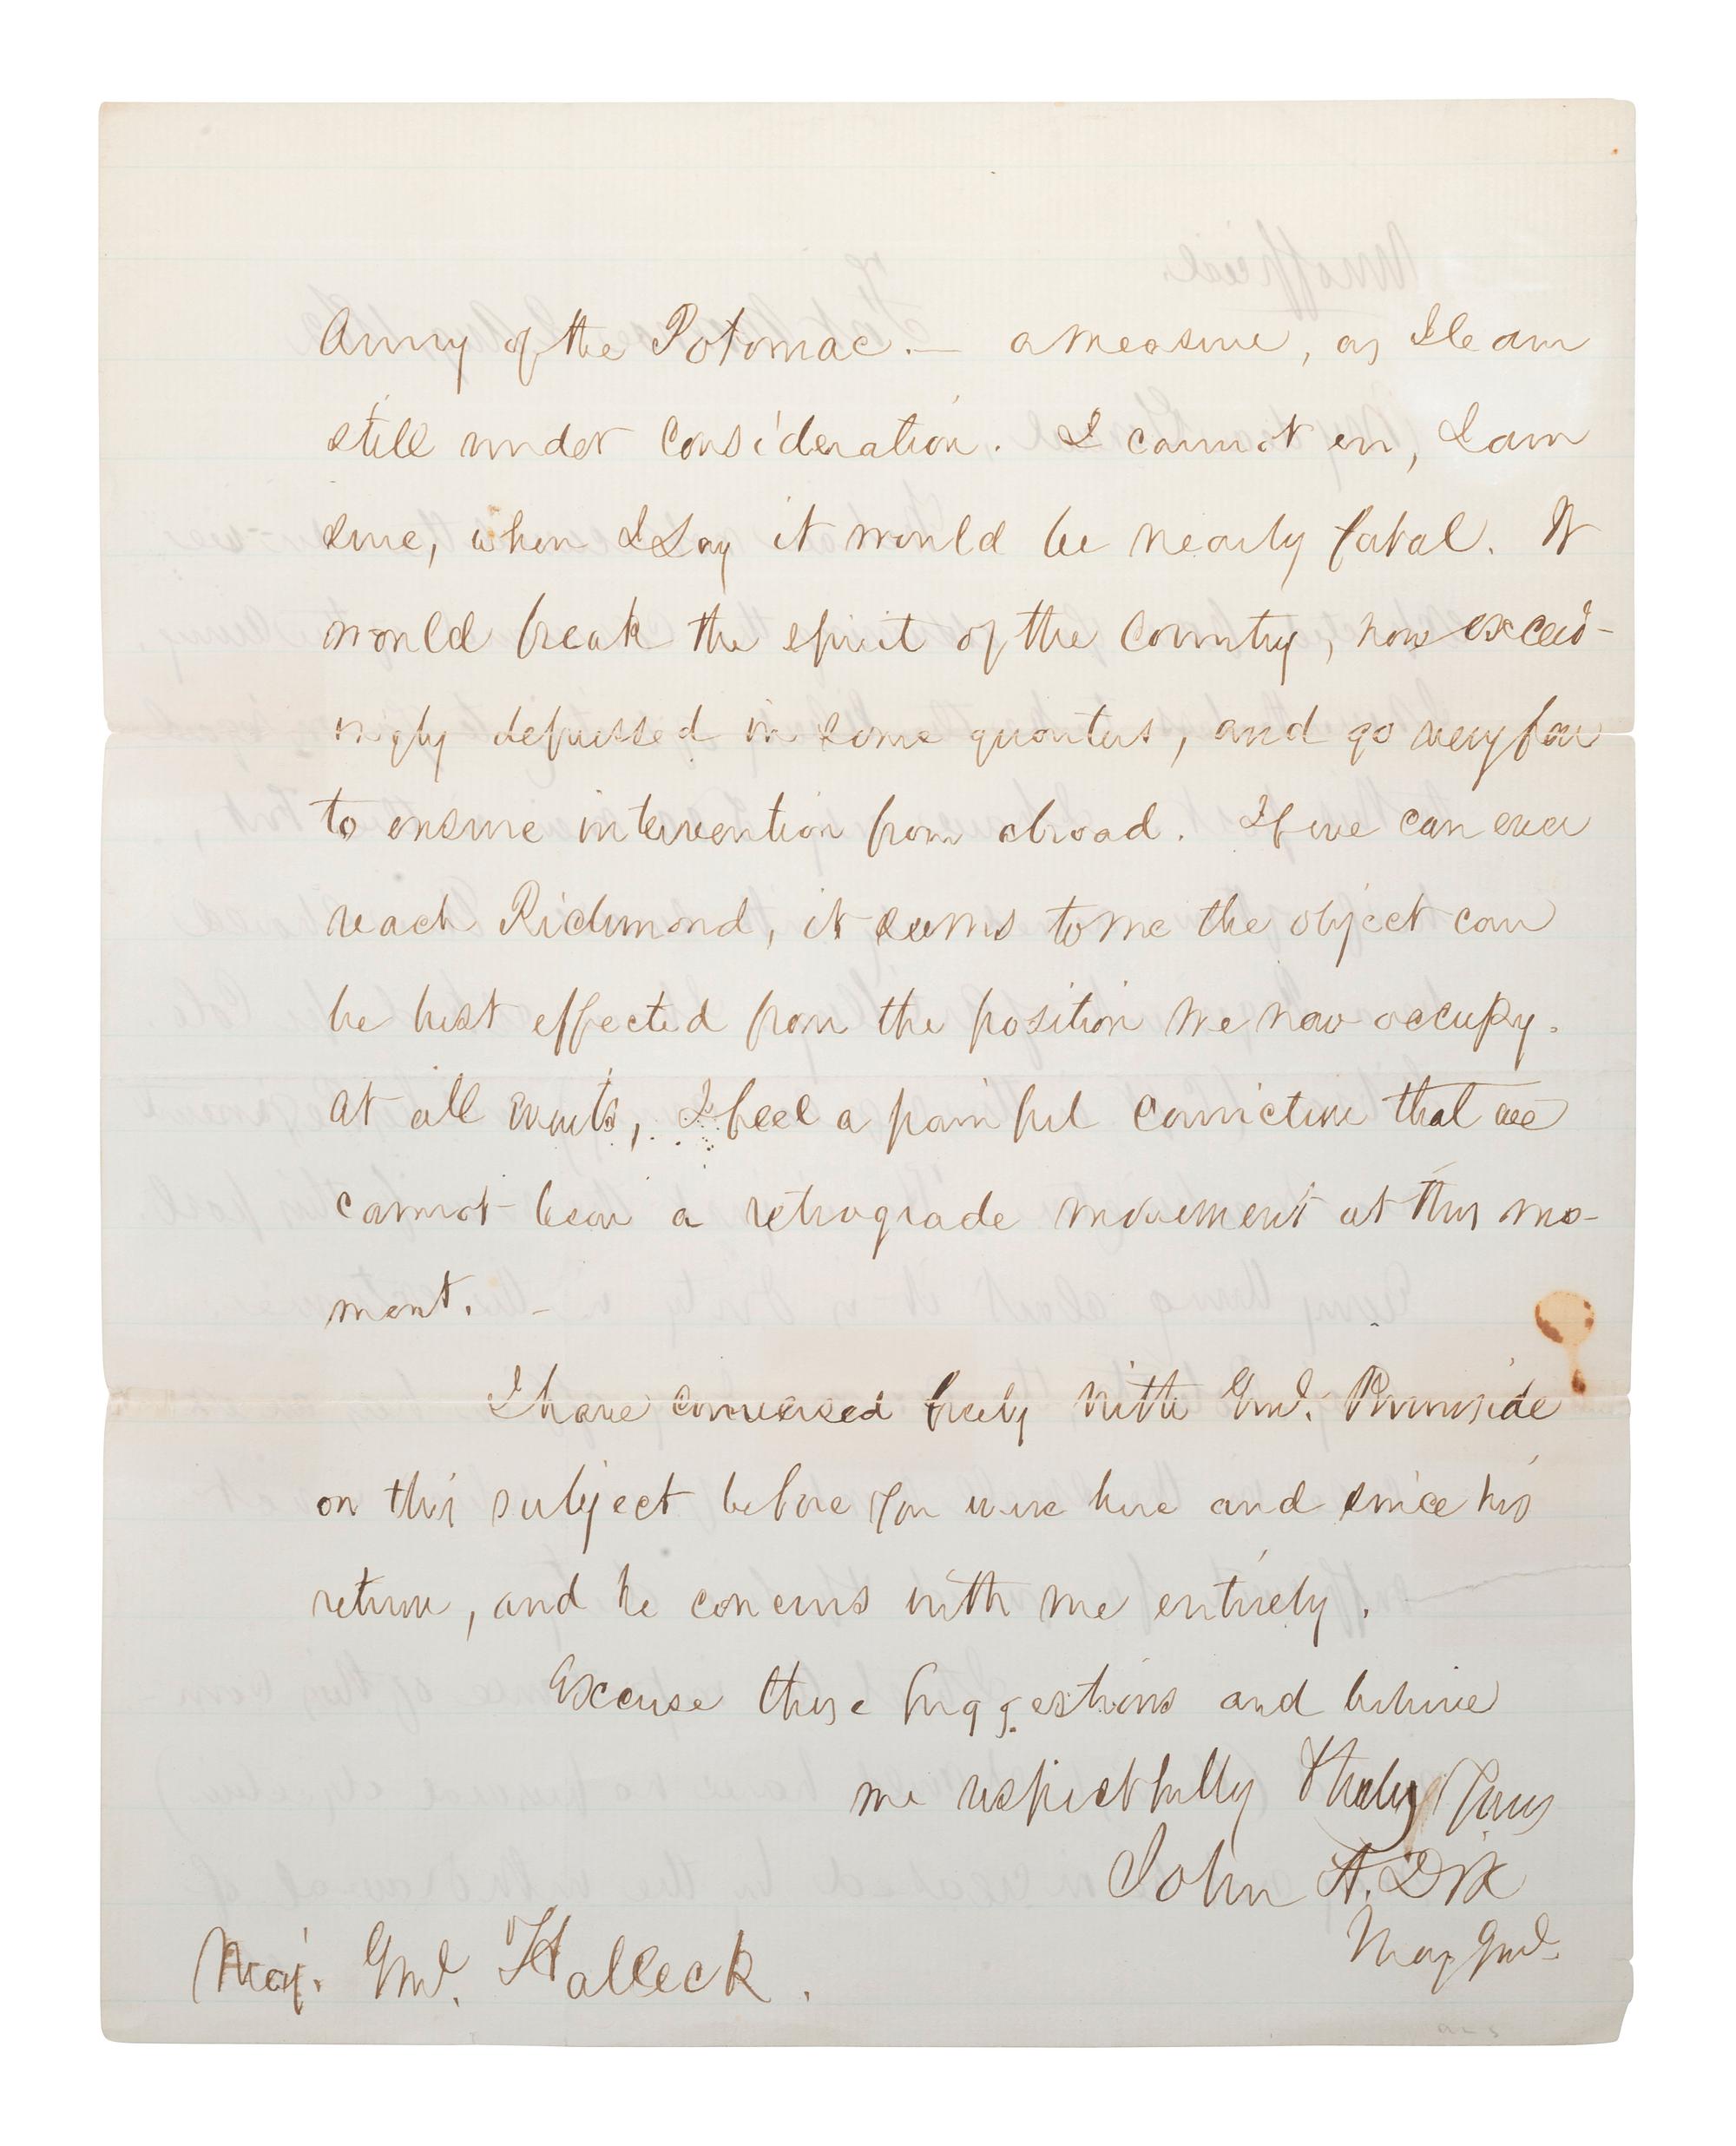 Army of the Potomac. — a measure, as I learn
still under consideration. I cannot err, I am
sure, when I say it would be nearly fatal. It
would break the spirit of the Country, now exceed-
ingly depressed in some quarters, and go very far
to ensure intervention from abroad. If we can ever
reach Richmond, it seems to me the object can
be best effected from the position we now occupy.
At all events, I feel a painful conviction that we
cannot bear a retrograde movement at this mo-
ment. —
I have conversed freely with Genl. Burnside
on this subject before you were here and since his
return, and he concurs with me entirely.
Excuse these suggestions and believe
me respectfully & truly Yours
John A. Dix
Maj Genl.
Maj. Genl. Halleck.
Unofficial.